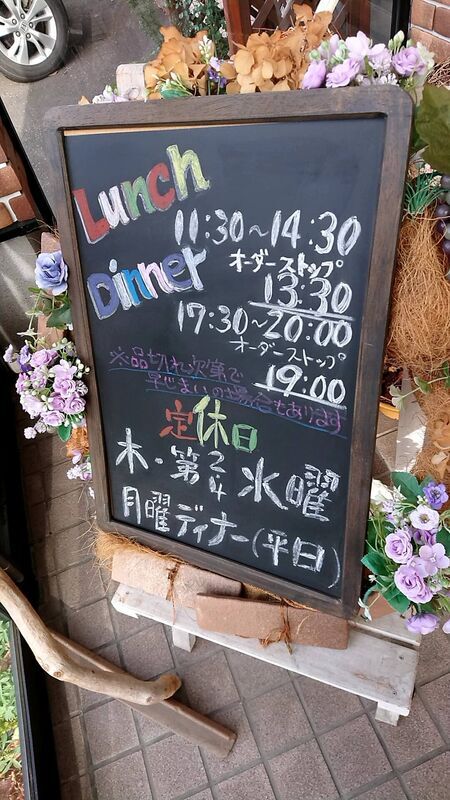 Lunch
11:30～14:30
オーダーストップ
13:30
Dinner
17:30～20:00
オーダーストップ
19:00
※品切れ次第で
早じまいの場合もあります
定休日
木・第2 4 水曜
月曜ディナー(平日)